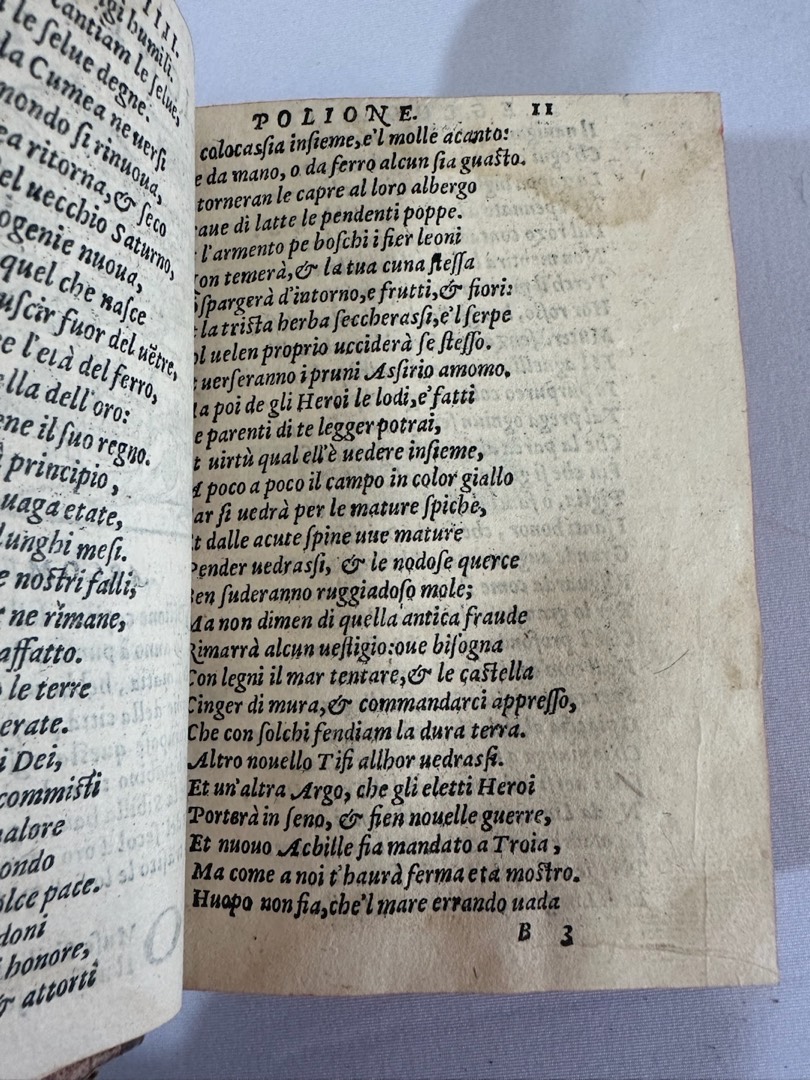 IIII.
gi humili.
cantiam le ſelue,
le ſelue degne.
la Cumea ne uerſi
mondo ſi rinuoua,
ea ritorna, & ſeco
del uecchio Saturno,
ogenie nuoua,
quel che naſce
uſcir fuor del uẽtre,
e l'età del ferro,
ella dell'oro:
ene il ſuo regno.
principio,
uaga etate,
lunghi meſi.
e noſtri falli,
ne rimane,
affatto.
o le terre
erate.
i Dei,
commiſti
ualore
ondo
olce pace.
doni
i honore,
& attorti
POLIONE. 11
colocaſsia inſieme, e'l molle acanto:
e da mano, o da ferro alcun ſia guaſto.
torneran le capre al loro albergo
raue di latte le pendenti poppe.
l'armento pe boſchi i fier leoni
on temerà, & la tua cuna ſteſſa
ſpargerà d'intorno, e frutti, & fiori:
t la triſta herba ſeccheraſsi, e'l ſerpe
ol uelen proprio ucciderà ſe ſteſſo.
t uerſeranno i pruni Aſsirio amomo.
a poi de gli Heroi le lodi, e' fatti
e parenti di te legger potrai,
t uirtù qual ell'è uedere inſieme,
A poco a poco il campo in color giallo
ar ſi uedrà per le mature ſpiche,
Et dalle acute ſpine uue mature
Pender uedraſsi, & le nodoſe querce
Ben ſuderanno ruggiadoſo mele;
Ma non dimen di quella antica fraude
Rimarrà alcun ueſtigio: oue biſogna
Con legni il mar tentare, & le caſtella
Cinger di mura, & commandarci appreſſo,
Che con ſolchi fendiam la dura terra.
Altro nouello Tifi allhor uedraſsi.
Et un'altra Argo, che gli eletti Heroi
Porterà in ſeno, & fien nouelle guerre,
Et nuouo Achille fia mandato a Troia,
Ma come a noi t'haurà ferma eta moſtro.
Huopo non fia, che'l mare errando uada
B 3